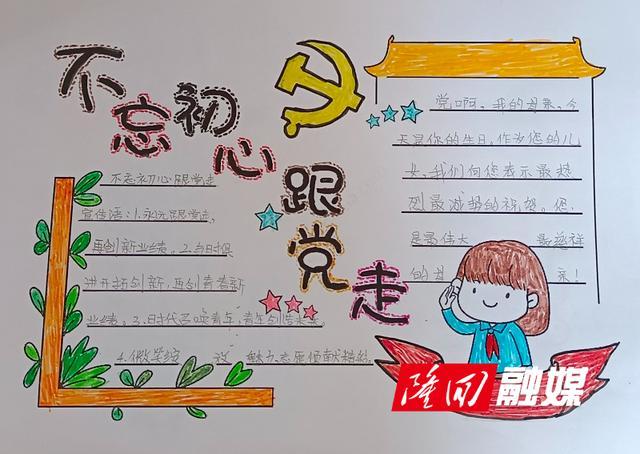 不忘初心
跟党走
不忘初心跟党走
宣传语：1.永远跟党走，
再创新业绩。2.与时俱
进开拓创新，再创青春新
业绩。3.时代召唤青年；青年创造未来
4.微笑绽 这 魅力志愿俱献精彩
党啊，我的母亲，今
天是你的生日，作为您的儿
女，我们向您表示最热
烈最诚挚的祝贺。您，
是最伟大 最慈祥
的母 亲！
隆回融媒